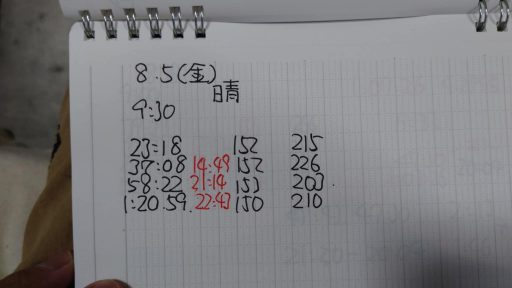 8.5(金)
晴
9:30
23:18 152 215
37:08 14:49 152 226
58:22 21:14 153 203.
1:20.59. 22:43 150 210